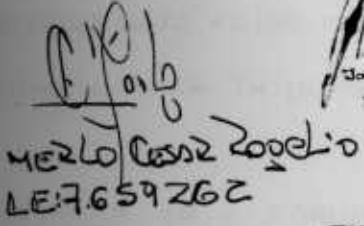 Jo
MERLO CESAR ROGELIO
LE:7.659262